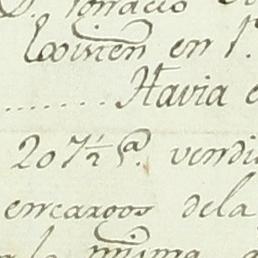 D. Ignacio
en 1
Havia
207½ @. vendi
encargos dela
misma